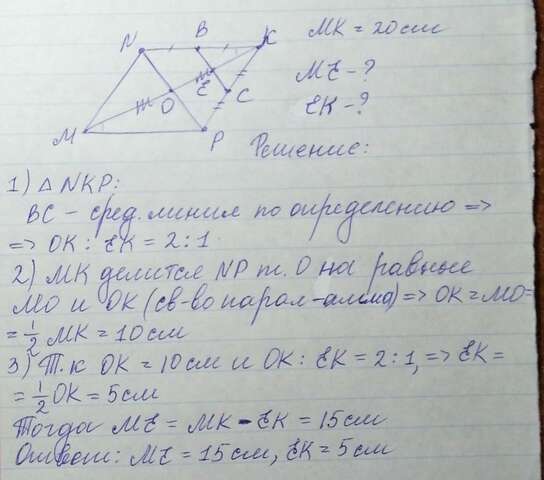 N B K MK = 20см
E C ME - ?
O EK - ?
M P Решение:
1) △ NKP:
BC - сред. линия по определению =>
=> OK : EK = 2 : 1
2) MK делится NP т. O на равные
MO и OK (св-во парал-амма) => OK = MO =
= 1/2 MK = 10см
3) Т.к OK = 10см и OK : EK = 2 : 1, => EK =
= 1/2 OK = 5см
Тогда ME = MK - EK = 15см
Ответ: ME = 15см, EK = 5см